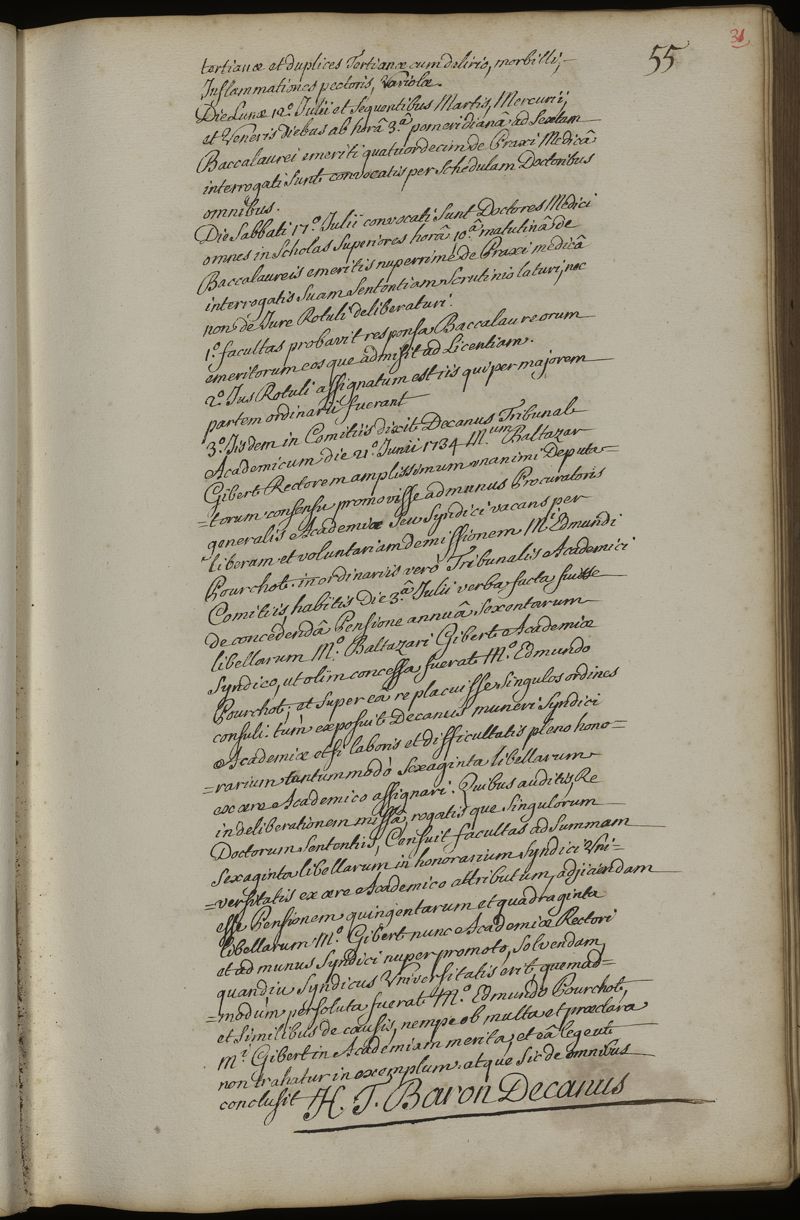 31
55
tertianæ et duplices Tertianæ cum delirio, morbilli,
Inflammationes pectoris, Variolæ.
Die Lunæ 12.º Julii et Sequentibus Martis, Mercurii,
et Veneris diebus ab horâ 3.ª pomeridianâ ad Sextam
Baccalaurei emeriti quatuordecim de Praxi Medicâ
interrogati Sunt convocatis per Schedulam Doctoribus
omnibus.
Die Sabbati 17.º Julii convocati Sunt Doctores Medici
omnes in Scholas Superiores horâ 10.ª matutinâ de
Baccalaureis emeritis nuperrimè de Praxi medicâ
interrogatis Suam Sententiam Scrutinio laturi, nec
non de Jure Rotuli deliberaturi.
1.º facultas probavit responsa Baccalaureorum
emeritorum eos que admisit ad Licentiam.
2.º Jus Rotuli assignatum est iis qui per majorem
partem ordinarii fuerant
3.º Iisdem in Comitiis dixit Decanus Tribunal
Academicum die 21.º Junii 1734 M.um Baltazar
Gibert Rectorem amplissimum unanimi Deputa=
=torum consensu promovisse ad munus Procuratoris
generalis Academiæ Seu Syndici vacans per
liberam et voluntariam demissionem M.i Edmundi
Pourchot. in ordinariis verò Tribunalis Academici
Comitiis habitis Die 3.ª Julii verba facta fuisse
de concedendâ Pensione annuâ Sexentarum
libellarum M.º Baltazari Gibert Academiæ
Syndico, ut olim concessa fuerat M.º Edmundo
Pourchot; et Super eâ re placuisse Singulos ordines
consuli. tum exposuit Decanus muneri Syndici
Academiæ etsi laboris et difficultatis pleno hono=
=rarium tantummodò Sexaginta libellarum
ex ære Academico assignari. Quibus auditis, Re
in deliberationem missâ, rogatis que Singulorum
Doctorum Sententiis, Censuit facultas ad Summam
Sexaginta libellarum in honorarium Syndici Uni=
=versitatis ex ære Academico attributum, adjiciendam
esse Pensionem quingentarum et quadraginta
libellarum M.º Gibert nunc Academiæ Rectori
et ad munus Syndici nuper promoto, Solvendam
quandiu Syndicus Universitatis erit, quemad=
=modùm persoluta fuerat M.º Edmundo Pourchot,
et Similibus de causis, nempe ob multa et præclara
M.i Gibert in Academiam merita; et eâ lege ut
non trahatur in exemplum. atque Sic de omnibus
conclusit H. T. Baron Decanus